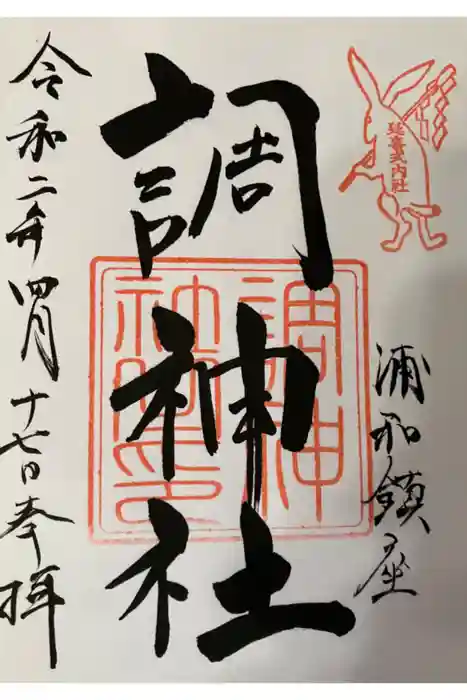 延喜式内社
浦和鎮座
調神社
調神社印
令和二年四月十七日奉拝